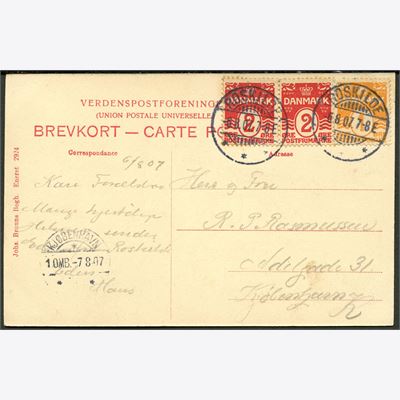 VERDENSPOSTFORENINGEN
(UNION POSTALE UNIVERSELLE)
BREVKORT — CARTE PO
Correspondance
Adresse
DANMARK
2
ØRE
POSTFRIMÆRKE
DANMARK
2
ØRE
POSTFRIMÆRKE
ROSKILDE
6.8.07.7-8E
6/8 07
Kære Forældre
Mange hjertelige
Hilsner
under
Roskilde
Eders
Hans
KJØBENHAVN
1.OMB.-7 8.07
Herr og Fru
R. P. Rasmussen
Adelgade 31
København
K
Johs. Brorens Bogh. Eneret 2924